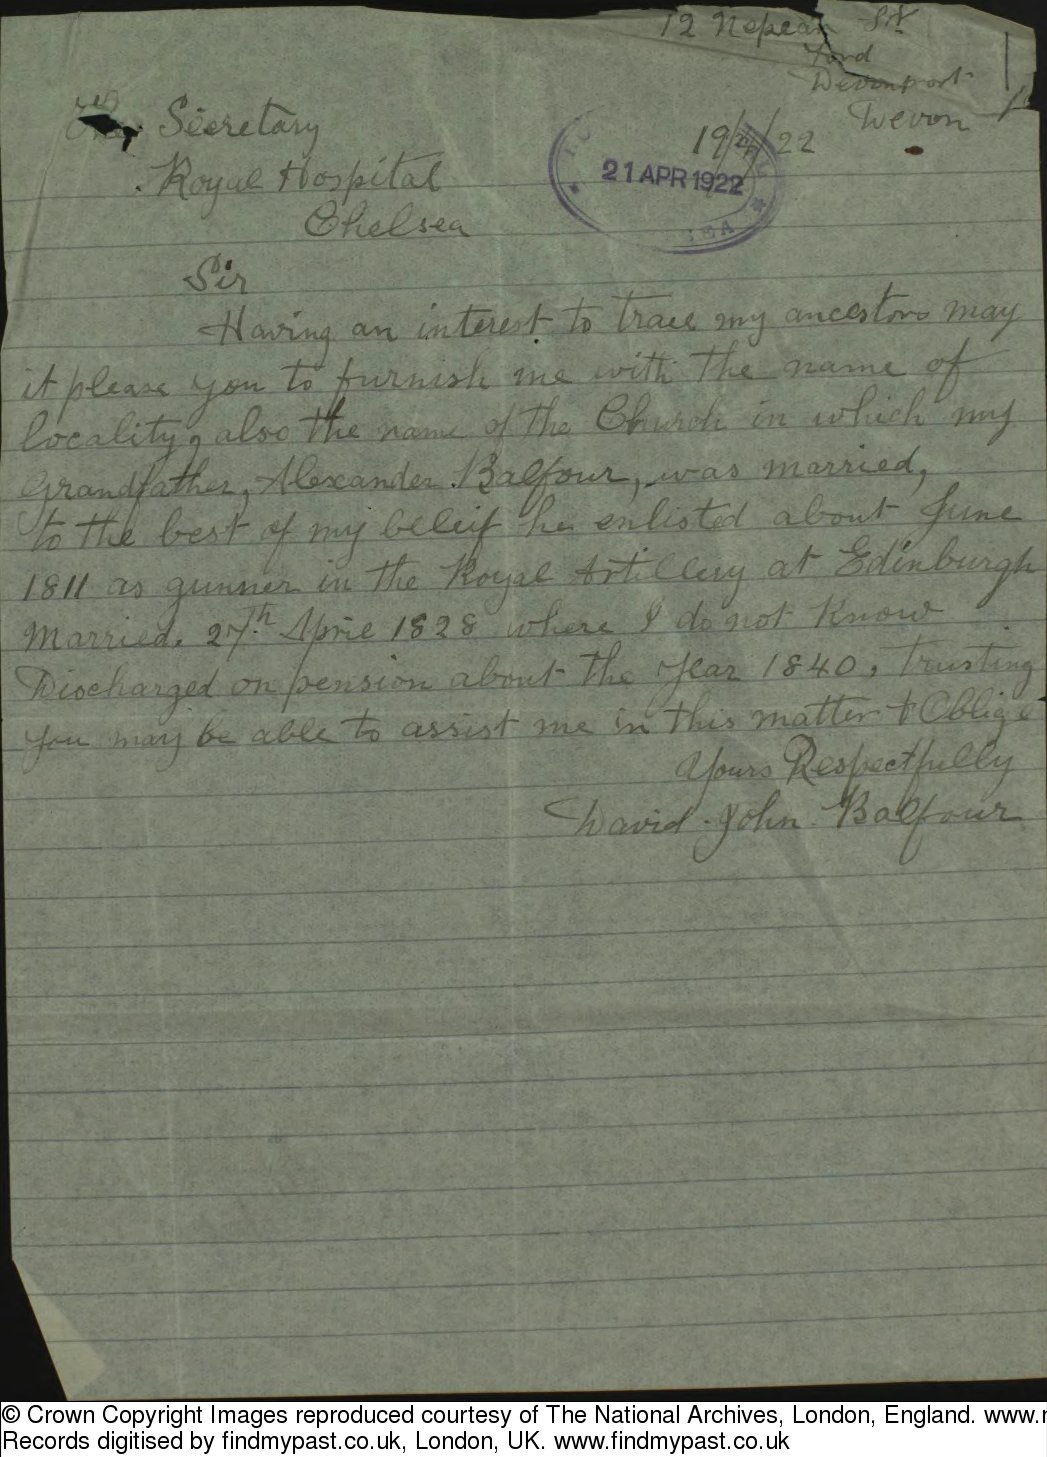 12 Nepean St
Ford
Devonport
Devon
The Secretary
19/4/22
Royal Hospital
21 APR 1922
Chelsea
Sir
Having an interest to trace my ancestors may
it please you to furnish me with the name of
locality, also the name of the Church in which my
Grandfather, Alexander Balfour, was married,
to the best of my beleif he enlisted about June
1811 as gunner in the Royal Artillery at Edinburgh
Married. 27th April 1828 where I do not Know
Discharged on pension about the Year 1840, trusting
you may be able to assist me in this matter & Oblige
Yours Respectfully
David John Balfour
© Crown Copyright Images reproduced courtesy of The National Archives, London, England. www.
Records digitised by findmypast.co.uk, London, UK. www.findmypast.co.uk